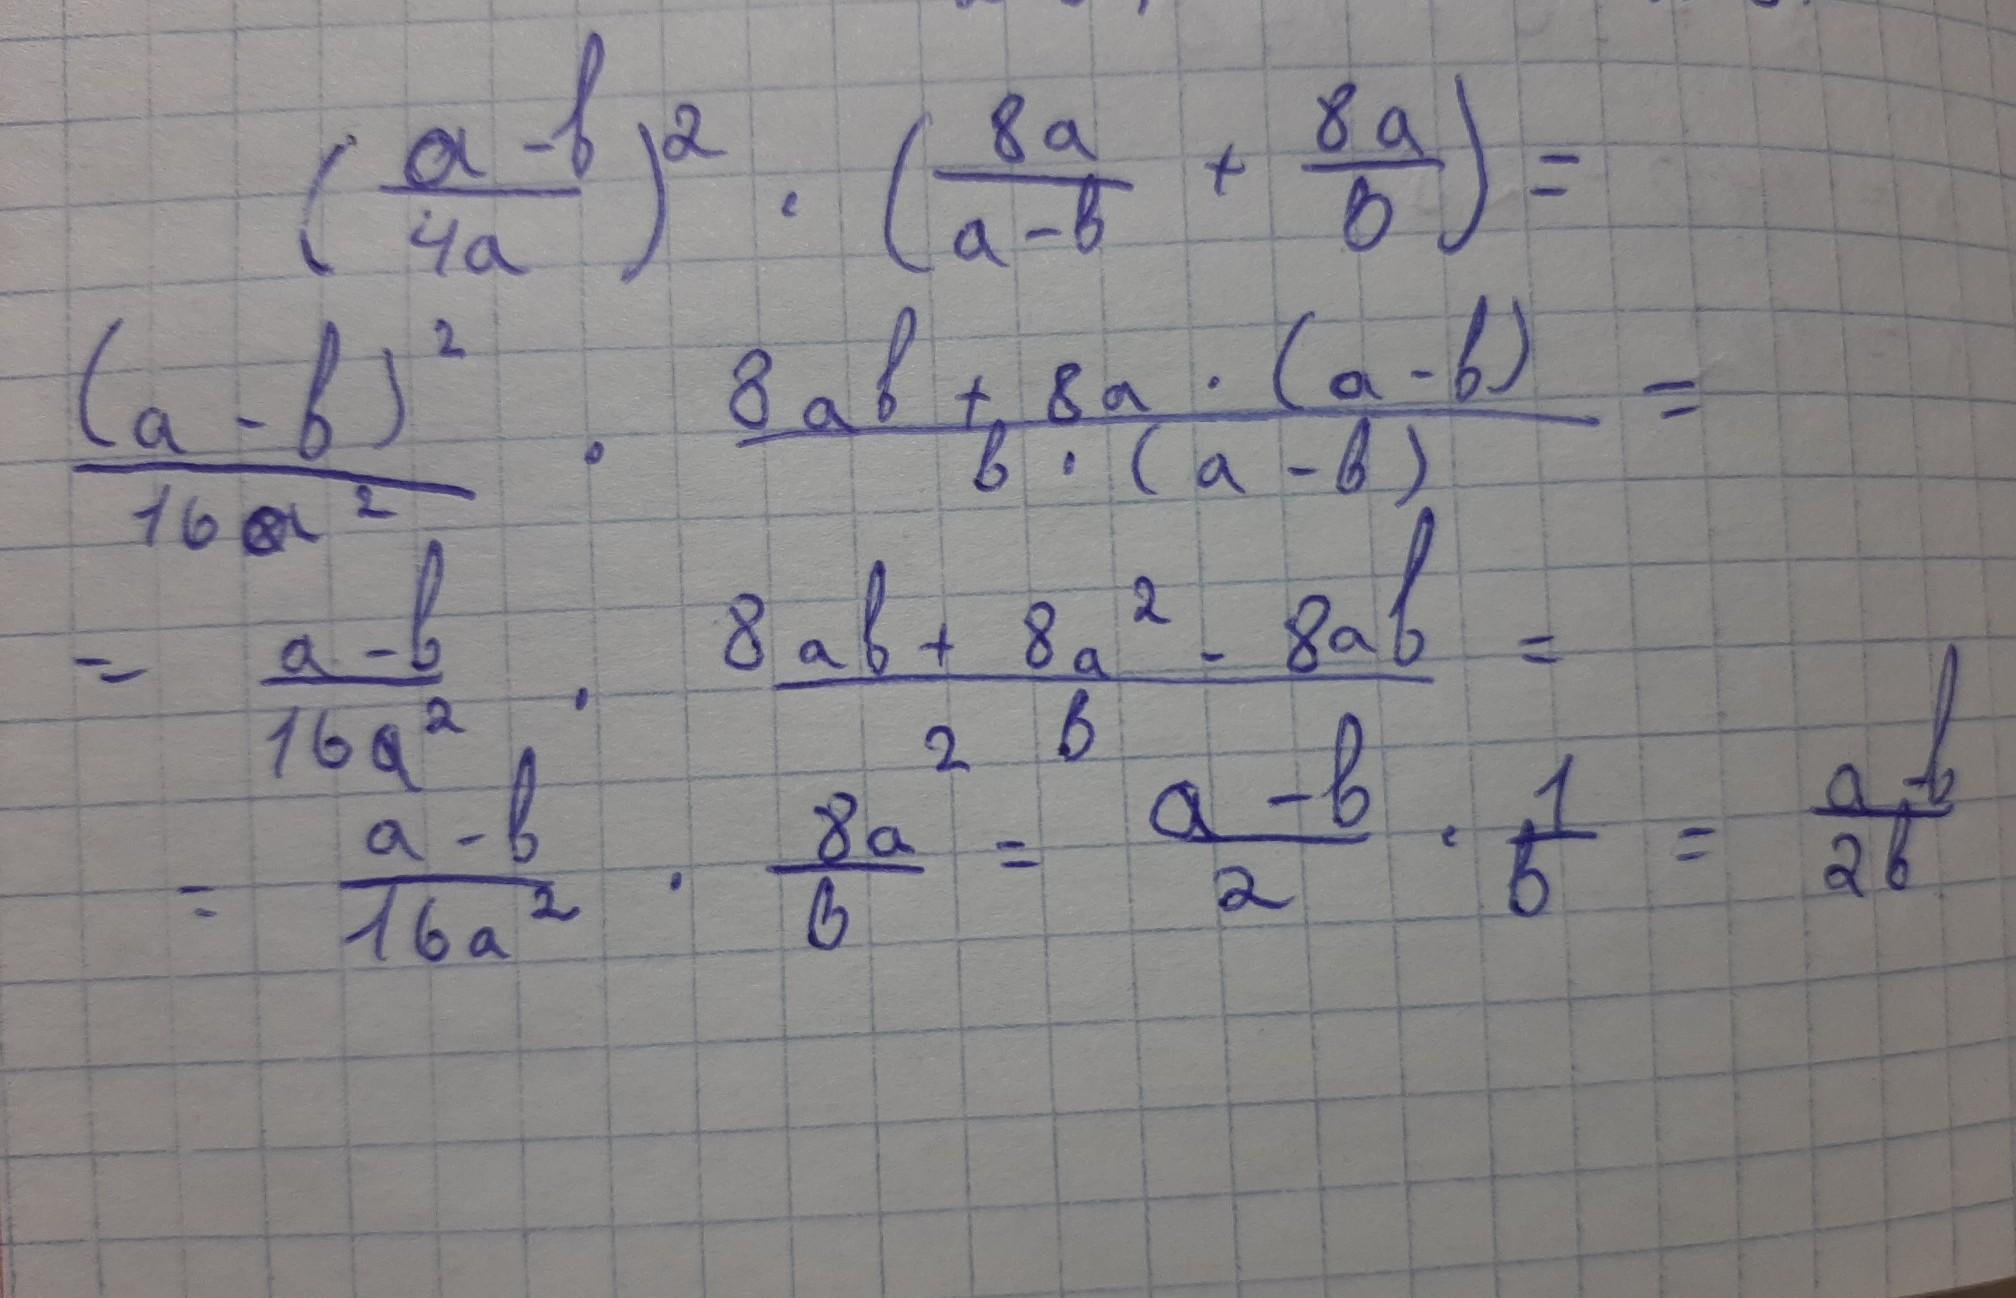 (a-b/4a)² · (8a/a-b + 8a/b) =
(a-b)²/16a² · 8ab + 8a · (a-b)/b · (a-b) =
= a-b/16a² · 8ab + 8a² - 8ab/b =
= a-b/16a² · 8a²/b = a-b/2 · 1/b = a-b/2b